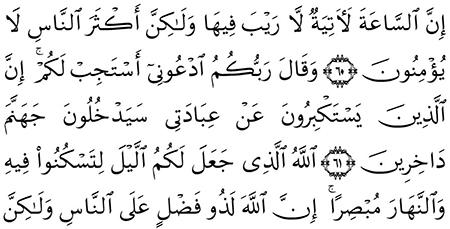 إِنَّ ٱلسَّاعَةَ لَأٓتِيَةٌ لَّا رَيْبَ فِيهَا وَلَٰكِنَّ أَكْثَرَ ٱلنَّاسِ لَا
يُؤْمِنُونَ ٦٥ وَقَالَ رَبُّكُمُ ٱدْعُونِيٓ أَسْتَجِبْ لَكُمْ ۚ إِنَّ
ٱلَّذِينَ يَسْتَكْبِرُونَ عَنْ عِبَادَتِي سَيَدْخُلُونَ جَهَنَّمَ
دَاخِرِينَ ٦١ ٱللَّهُ ٱلَّذِي جَعَلَ لَكُمُ ٱلَّيْلَ لِتَسْكُنُوا۟ فِيهِ
وَٱلنَّهَارَ مُبْصِرًا ۚ إِنَّ ٱللَّهَ لَذُو فَضْلٍ عَلَى ٱلنَّاسِ وَلَٰكِنَّ